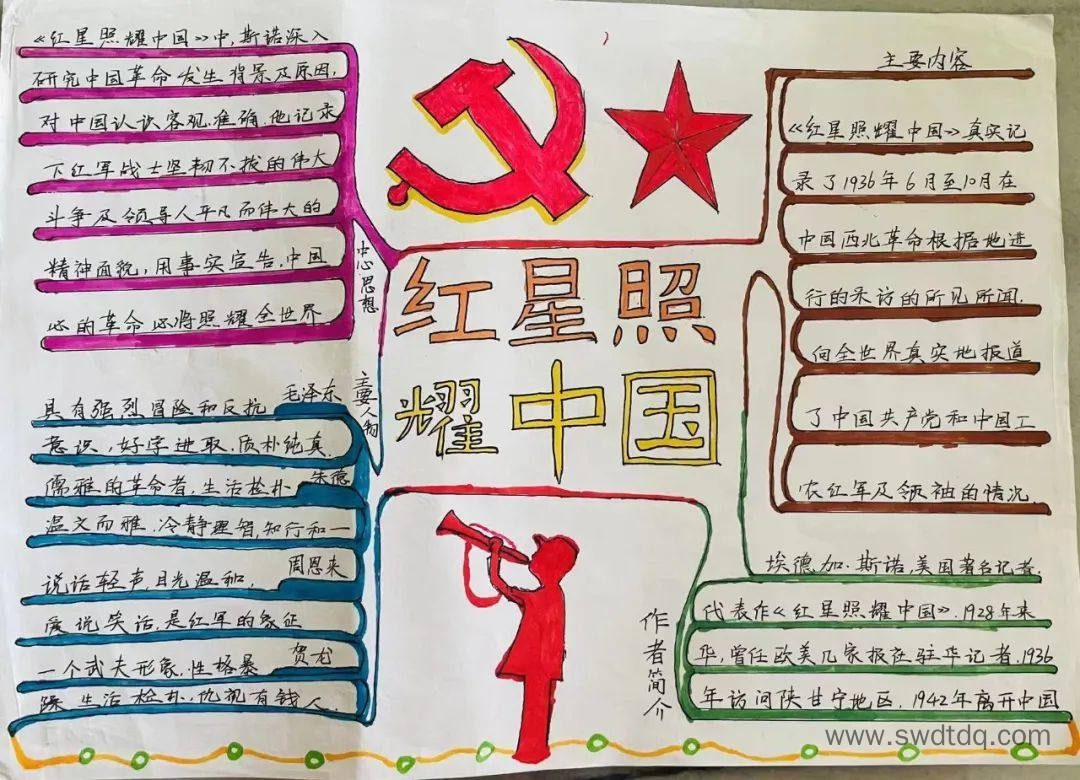 《红星照耀中国》中,斯诺深入
研究中国革命发生背景及原因,
对中国认识客观、准确,他记录
下红军战士坚韧不拔的伟大
斗争及领导人平凡而伟大的
精神面貌,用事实宣告,中国
的革命必将照耀全世界
中心思想
主要人物
毛泽东
具有强烈冒险和反抗
意识,好学进取、质朴纯真
朱德
儒雅的革命者,生活俭朴
温文而雅,冷静理智,知行和一
周恩来
说话轻声,目光温和,
爱说笑话,是红军的象征
贺龙
一个武夫形象,性格暴
躁,生活俭朴,仇视有钱人
红星照
耀中国
主要内容
《红星照耀中国》真实记
录了1936年6月至10月在
中国西北革命根据地进
行的采访的所见所闻,
向全世界真实地报道
了中国共产党和中国工
农红军及领袖的情况
作者简介
埃德加·斯诺,美国著名记者,
代表作《红星照耀中国》,1928年来
华,曾任欧美几家报社驻华记者,1936
年访问陕甘宁地区,1942年离开中国
www.swdtdq.com